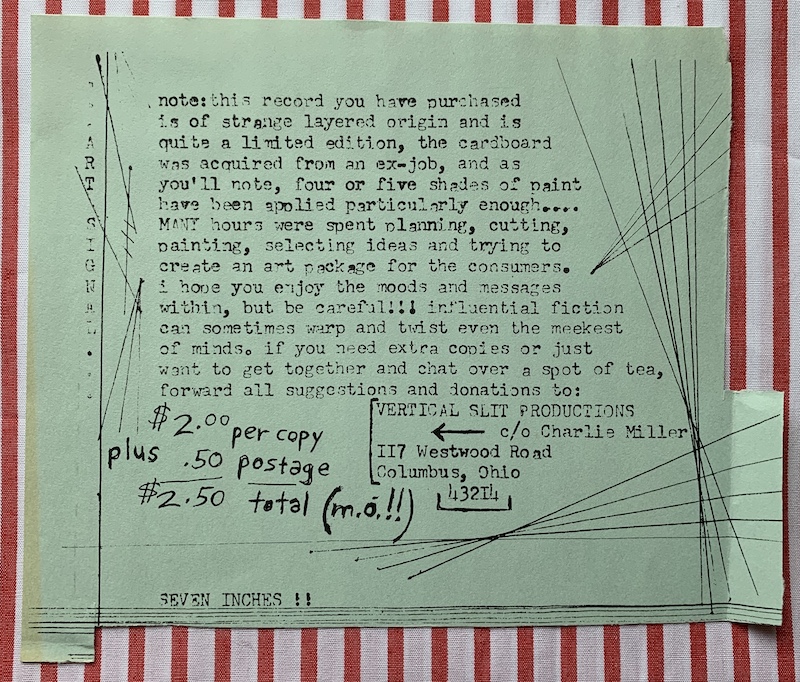 note:this record you have purchased
is of strange layered origin and is
quite a limited edition, the cardboard
was acquired from an ex-job, and as
you'll note, four or five shades of paint
have been applied particularly enough....
MANY hours were spent planning, cutting,
painting, selecting ideas and trying to
create an art package for the consumers.
i hope you enjoy the moods and messages
within, but be careful!!! influential fiction
can sometimes warp and twist even the meekest
of minds. if you need extra copies or just
want to get together and chat over a spot of tea,
forward all suggestions and donations to:
VERTICAL SLIT PRODUCTIONS
c/o Charlie Miller
II7 Westwood Road
Columbus, Ohio
432I4
$2.00 per copy
plus .50 postage
$2.50 total (m.o.!!)
SEVEN INCHES !!
ART SIGNAL